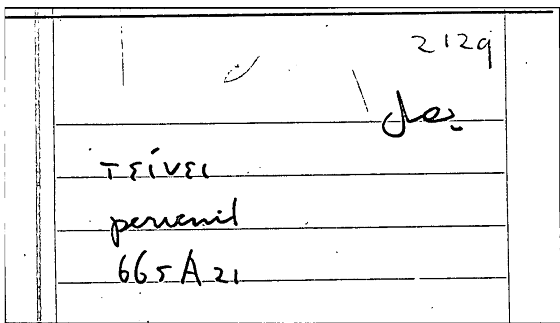 2129
τείνει
pervenit
665A21